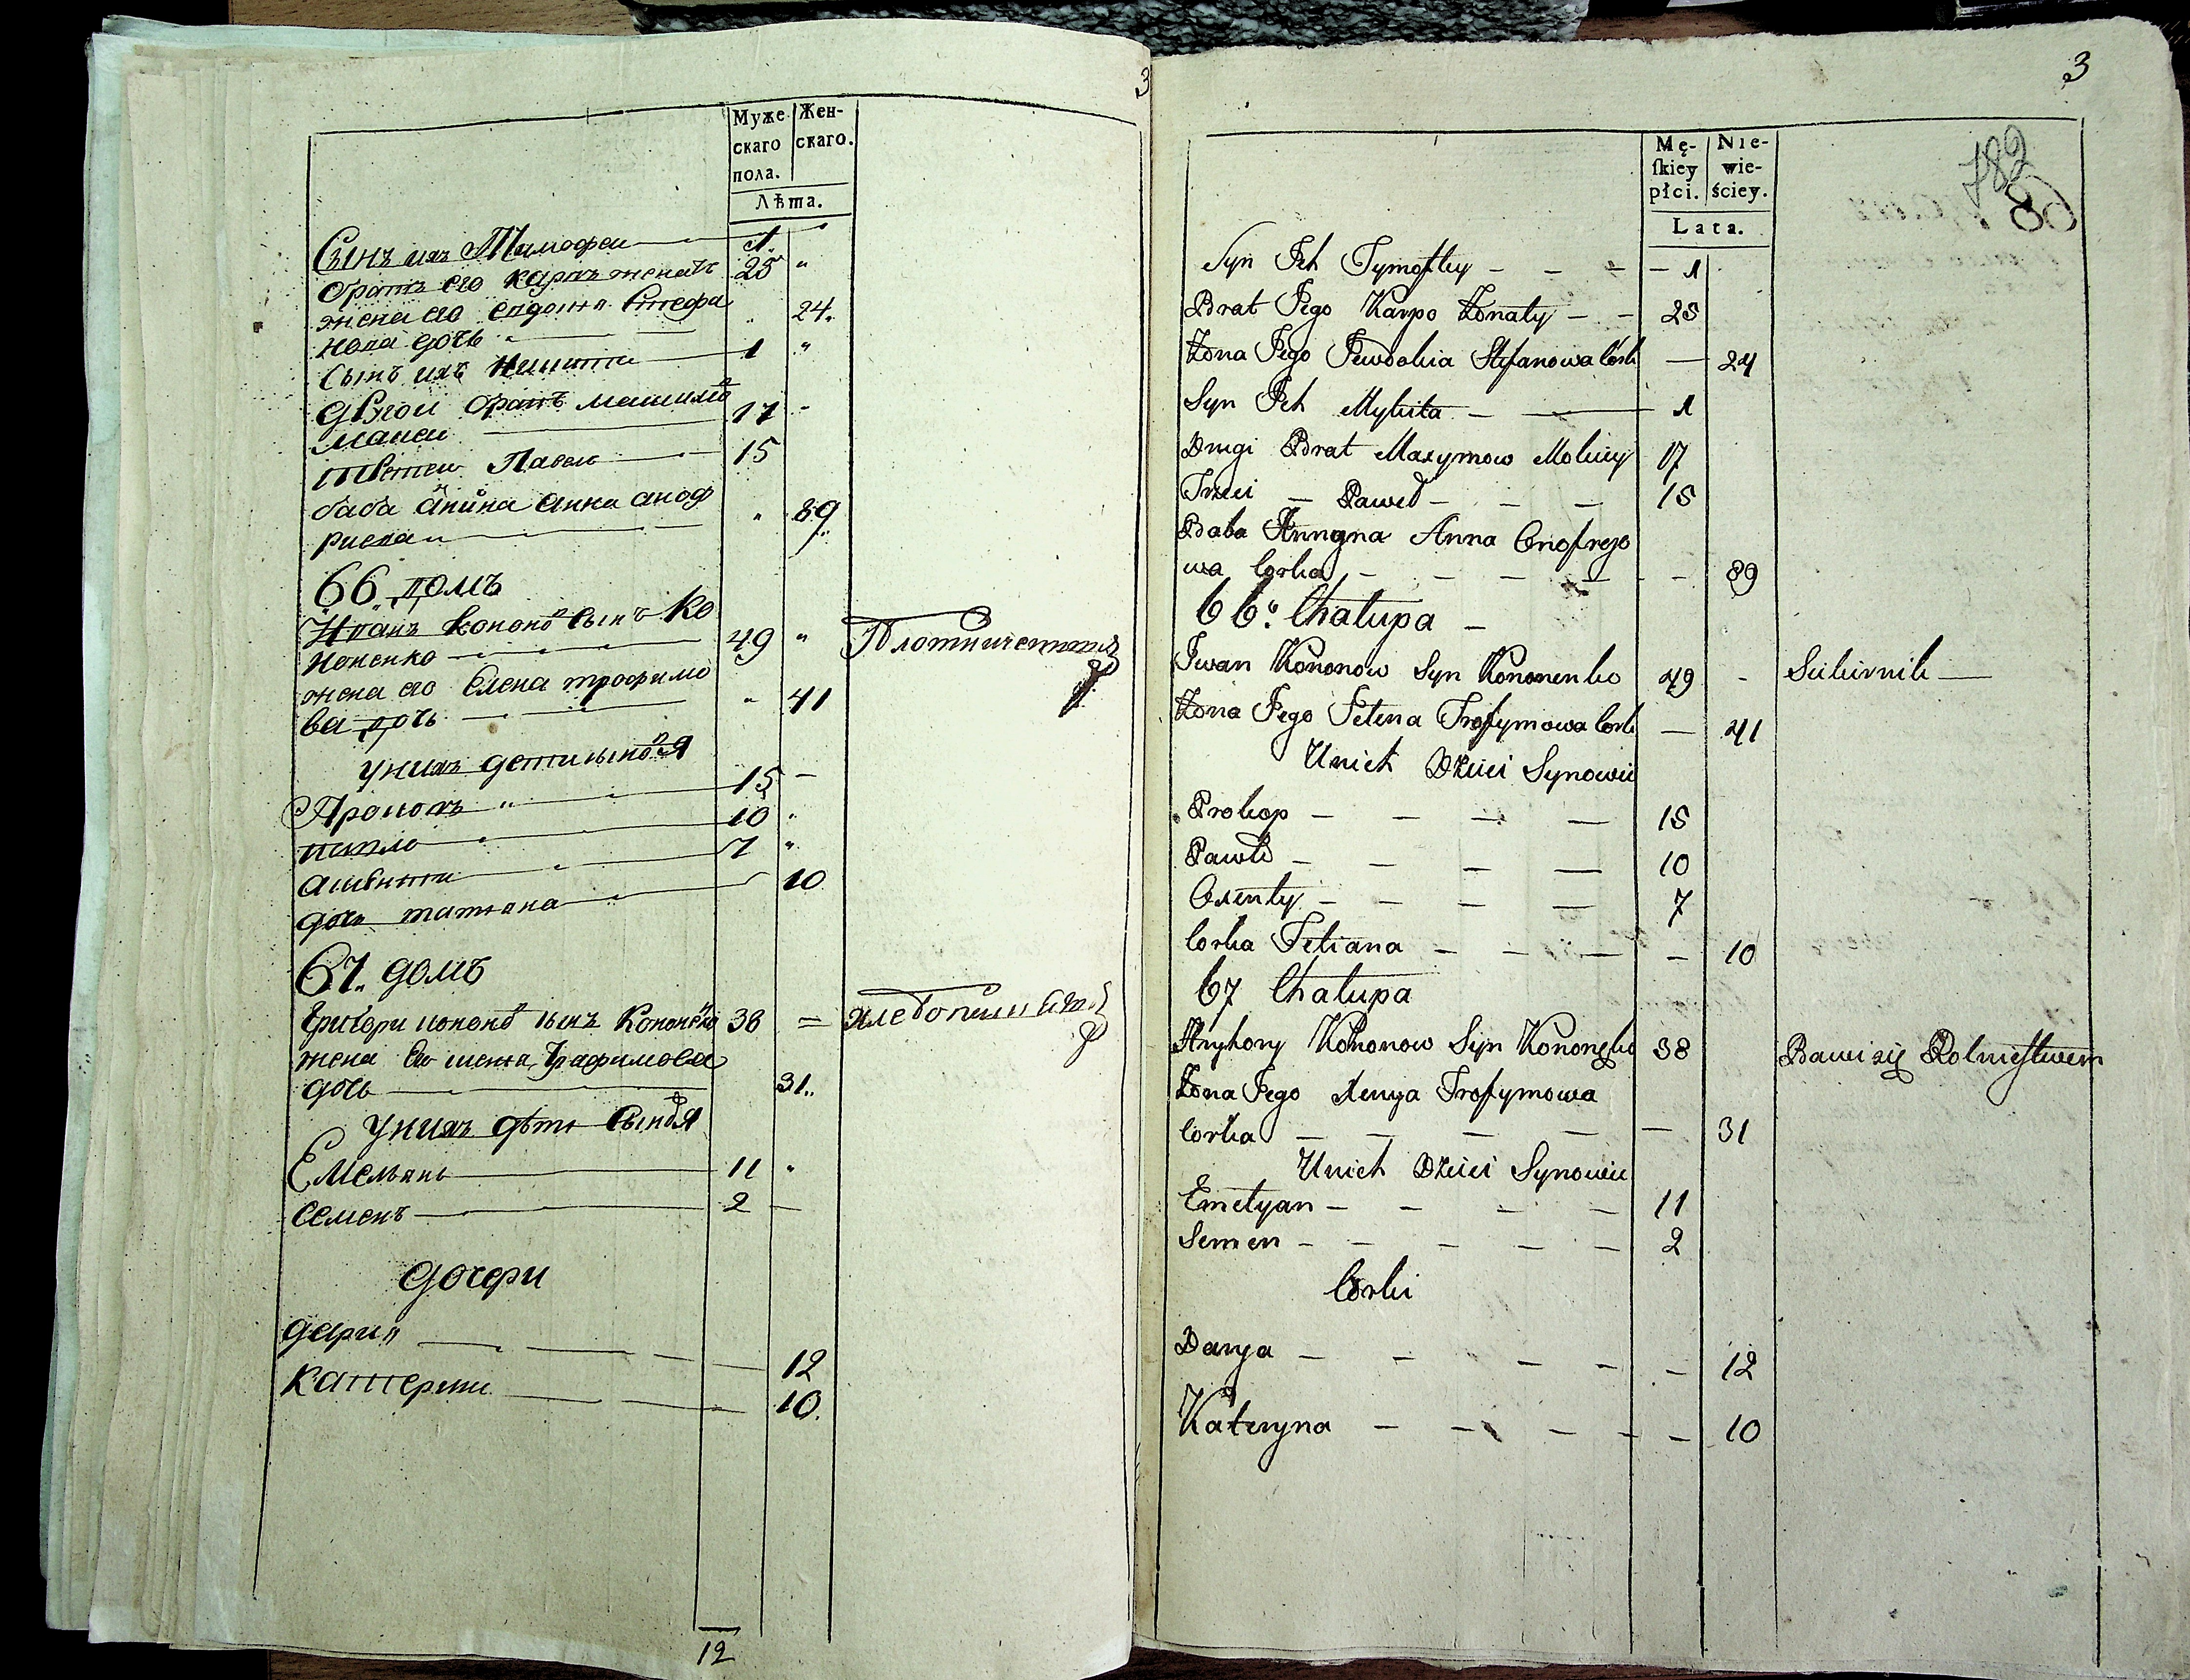 3
Муже
скаго
пола.
Жен-
скаго.
Лѣта.
Сынъ ихъ Тимофеи 1.
братъ его карпъ женатъ 25 "
жена его евдокия Стефа
нова дочь " 24.
Сынъ ихъ Никита 1 "
другои братъ максимо
мокеи 17 -
третеи Павелъ 15
баба Анина Анна аноф
риева " 89
66 домъ
Иванъ Кононо Сынъ Ко
ноненко 49 "
жена его Елена трофимо
ва дочь " 41
у нихъ дети сыновя
Прокопъ " 15 -
павло 10 "
аксенти 7 "
дочь татяна 10
67. домъ
Григори кононо сынъ Кононенко 38 =
жена Его Трафимова
дочь 31
у нихъ дѣти Сыновя
Емелянъ 11 "
Семенъ 2 -
дочери
дария 12
Катерина 10.
12
3
782
68
Mę-
ſkiey
płci.
Nie-
wie-
ściey.
Lata.
Syn Ich Tymofiey - - - - 1
Brat Jego Karpo Żonaty - - 25
Żona Jego Jewdokia Stefanowa Cork - 24
Syn Ich Mykita - - 1
Drugi Brat Maxymow Mokiey 17
Trzeci - Paweł - - - 15
Baba Annyna Anna Onofrejo
wa Corka - - - - - 89
66. Chałupa -
Iwan Kononow Syn Kononenko 49 - Siekirnik -
Żona Jego Jelena Trofymowa Cork - 41
Unich Dzieci Synowie
Prokop - - - - 15
Pawło - - - - 10
Oxenty - - - - 7
Corka Tetiana - - - - 10
67 Chałupa
Hryhory Kononow Syn Kononenko 38 Bawi się Rolnictwem
Żona Jego Xenya Trofymowa
Corka - - - - - 31
Unich Dzieci Synowie
Emelyan - - - - 11
Semen - - - - - 2
Corki
Darya - - - - - 12
Kateryna - - - - - 10